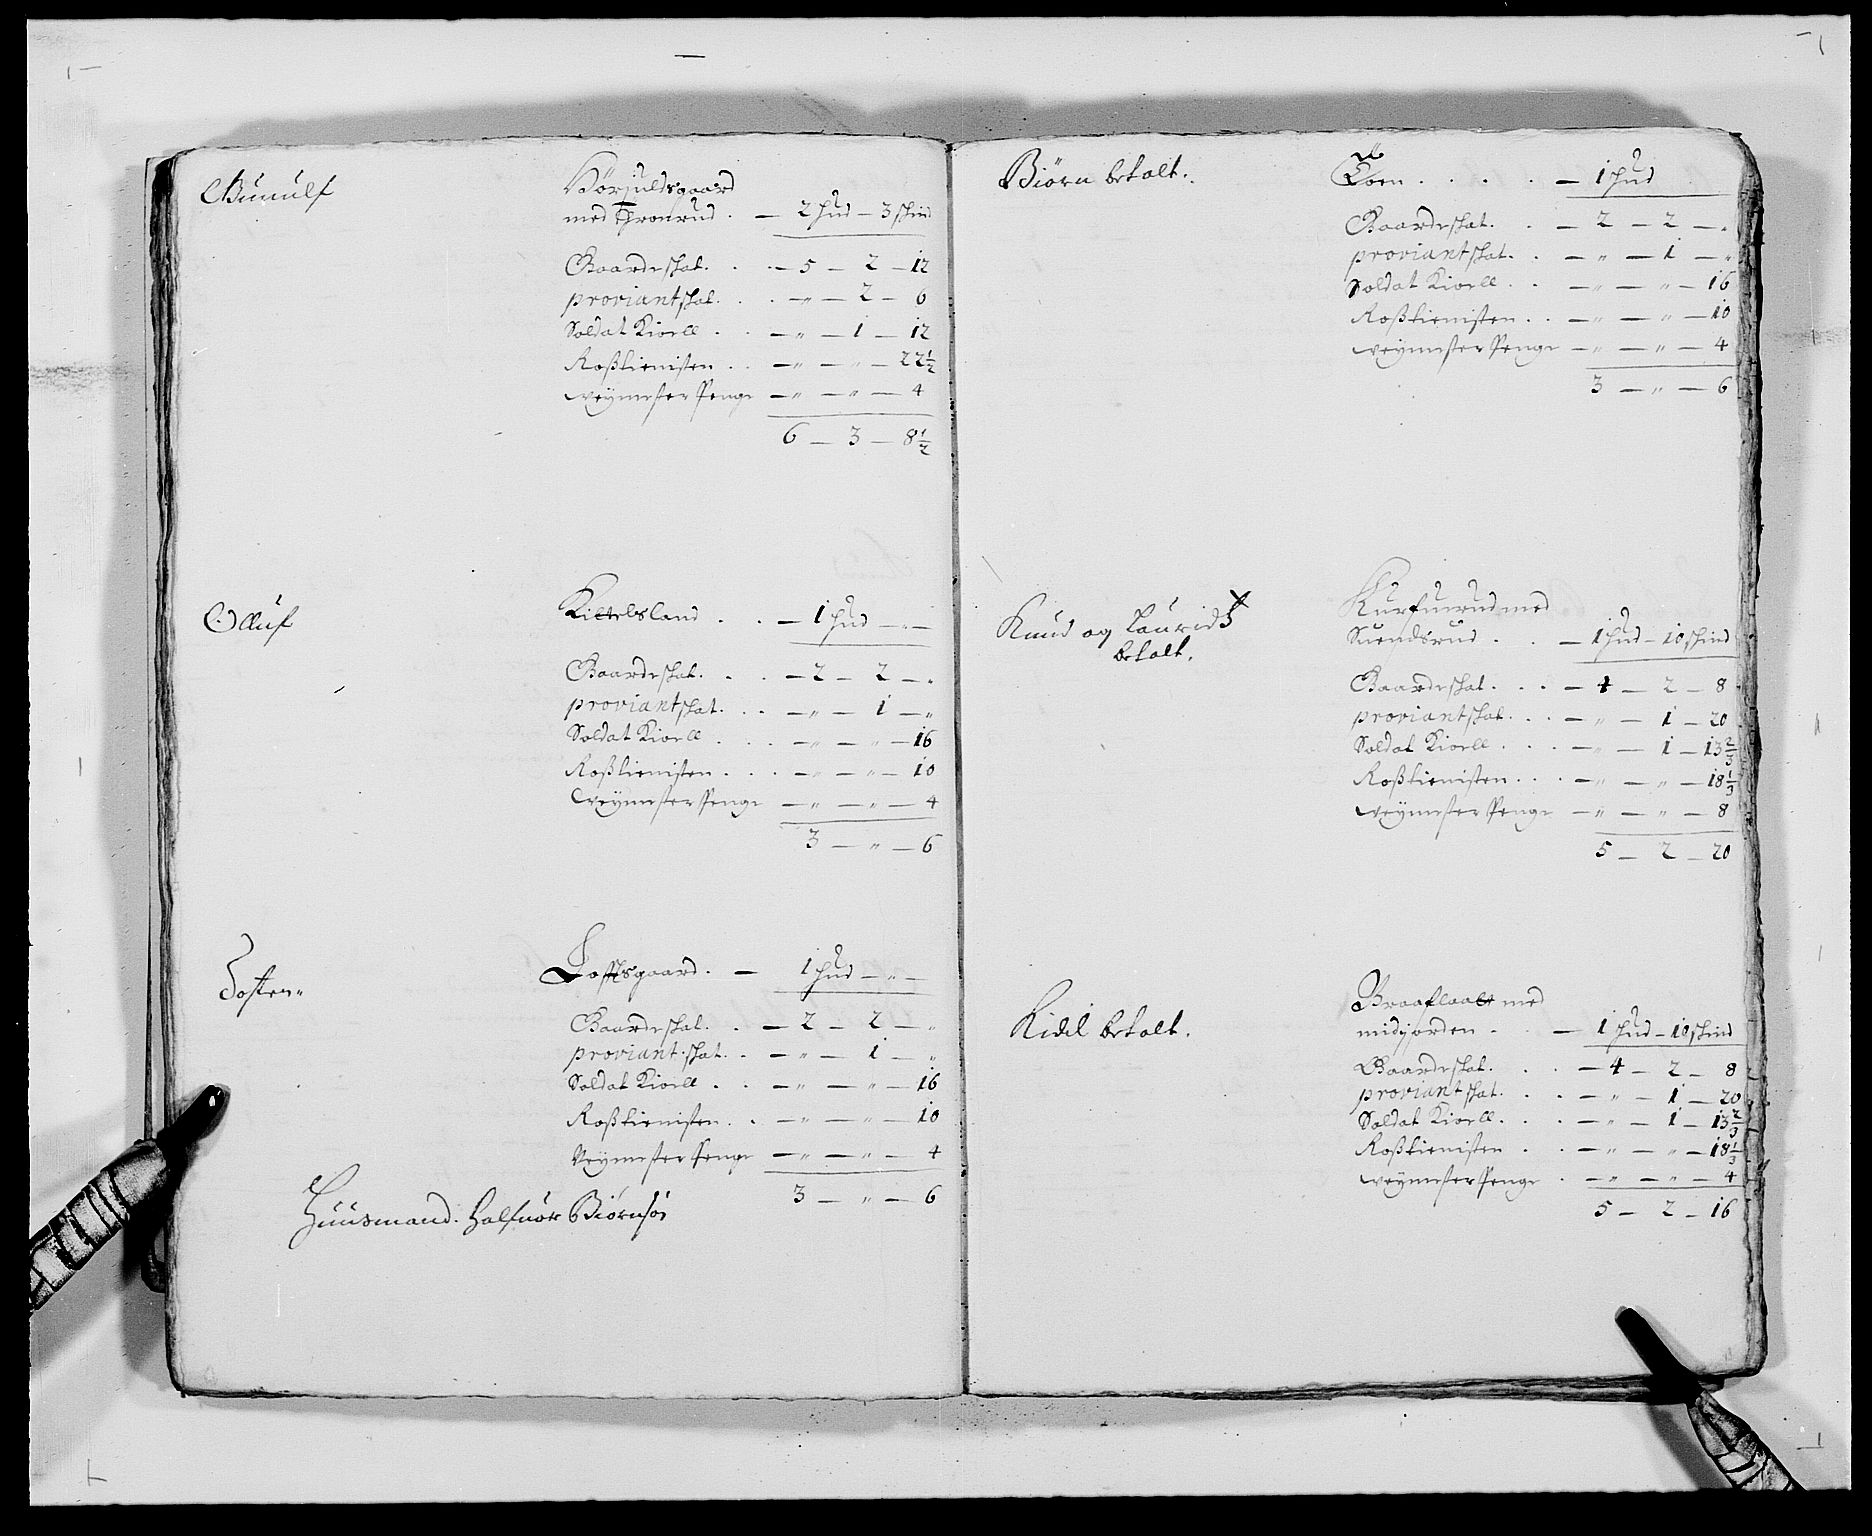 Gunulf
Hørjuldsgaard
med Tronrud . — 2 hud — 3 skind
Gaardeskat . . — 5 — 2 — 12
proviantskat . . — „ — 2 — 6
Soldat Kioell . . — „ — 1 — 12
Roßtienisten . . — „ — „ — 22½
weÿmester Penge — „ — „ — 4
6 — 3 — 8½
Olluf
Kittelsland . . — 1 hud — „ —
Gaardeskat . . — 2 — 2 — „
proviantskat . . — „ — 1 — „
Soldat Kioell . . . — „ — „ — 16
Roßtienisten . . . — „ — „ — 10
weÿmester Penge — „ — „ — 4
3 — „ — 6
Tosten
Loftsgaard . — 1 hud — „ —
Gaardeskat . . — 2 — 2 — „
proviantskat . . — „ — 1 — „
Soldat Kioell . . — „ — „ — 16
Roßtienisten . . — „ — „ — 10
Weÿmester Penge — „ — „ — 4
3 — „ — 6
Huusmand. Halfuor Biørnsøn
Biørn betalt.
Toen . . . . — 1 hud
Gaardeskat . . — 2 — 2 — „
proviantskat . . — „ — 1 — „
Soldat Kioell . . — „ — „ — 16
Roßtienisten . . — „ — „ — 10
weÿmester Penge — „ — „ — 4
3 — „ — 6
Knud og Lauridβ
betalt.
med
Suendsrud . . — 1 hud — 10 skind
Gaardeskat . . . — 4 — 2 — 8
proviantskat . . . — „ — 1 — 20
Soldat Kioell . . . — „ — 1 — 13⅔
Roßtienisten . . . — „ — „ — 18⅓
weÿmester Penge — „ — „ — 8
5 — 2 — 20
Kidel betalt.
Braaflaat med
midjorden . . — 1 hud — 10 skind
Gaardeskat . . . — 4 — 2 — 8
proviantskat . . . — „ — 1 — 20
Soldat Kioell . . . — „ — 1 — 13⅔
Roßtienisten . . — „ — „ — 18⅓
weÿmester Penge . — „ — „ — 4
5 — 2 — 16